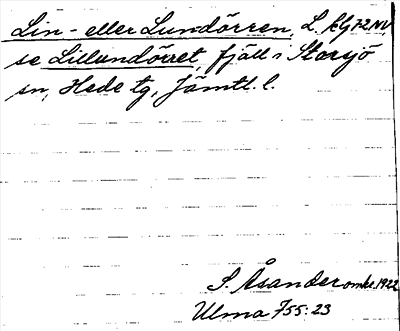 Lin- eller Lundörren, L. kG 7-2 NV,
se Lillundörret, fjäll i Storsjö
sn, Hede tg, Jämtl. l.
S. Åsander omkr. 1922
Ulma 755:23